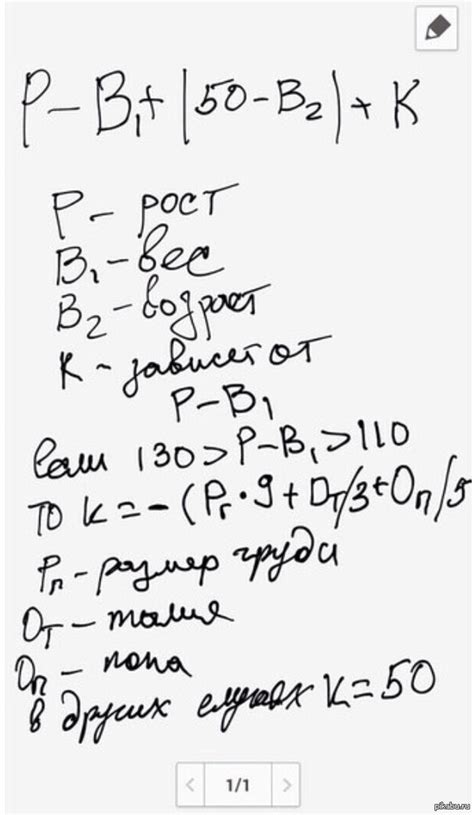 P - B₁ + |50 - B₂| + K
P - рост
B₁ - вес
B₂ - возраст
K - зависет от
P - B₁
Если 130 > P - B₁ > 110
то K = - (Pг · 9 + Oт/3 + Oп/5
Pп - размер груди
Oт - талия
Oп - попа
в других случаях K = 50
1/1
pikabu.ru